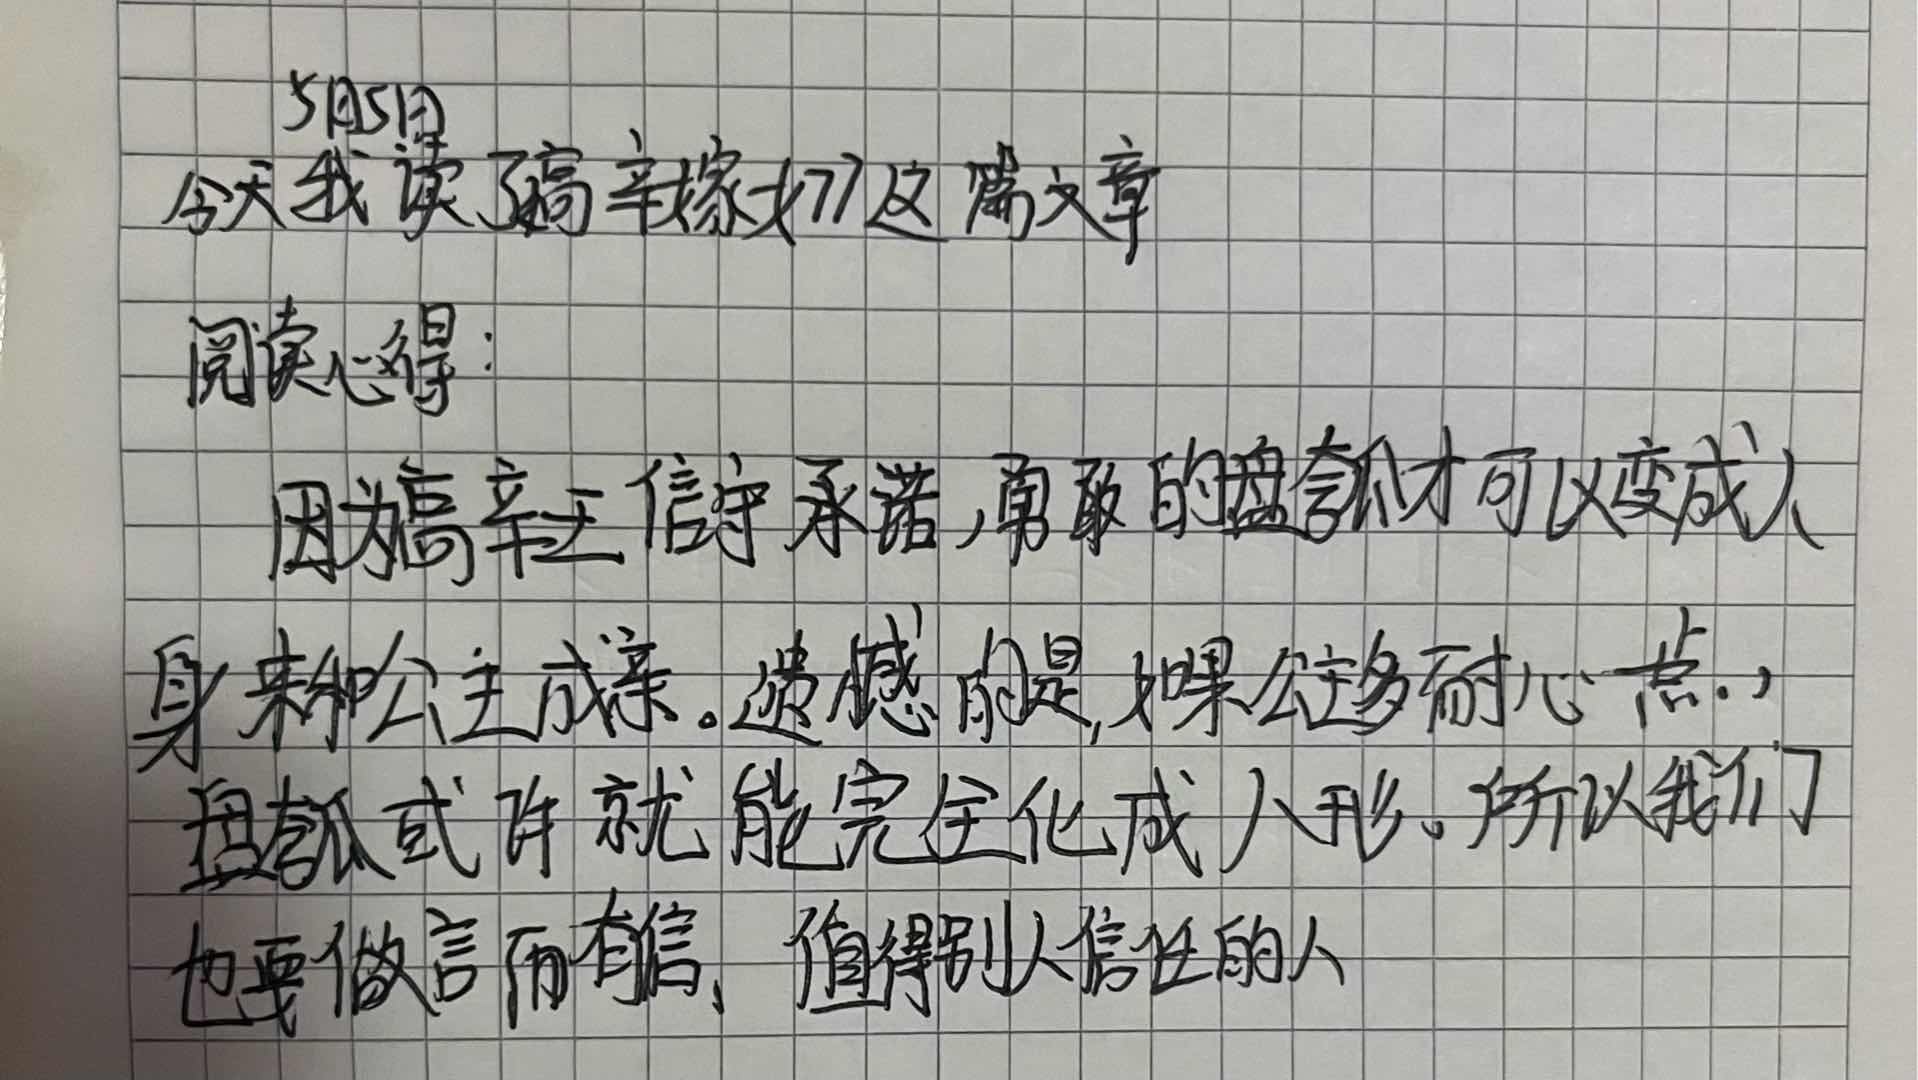 5月5日
今天我读了高辛嫁女77这篇文章
阅读心得:
因为高辛王信守承诺,勇敢的盘瓠才可以变成人
身来和公主成亲。遗憾的是,如果公主多耐心一点.,
盘瓠或许就能完全化成人形。所以我们
也要做言而有信、值得别人信任的人